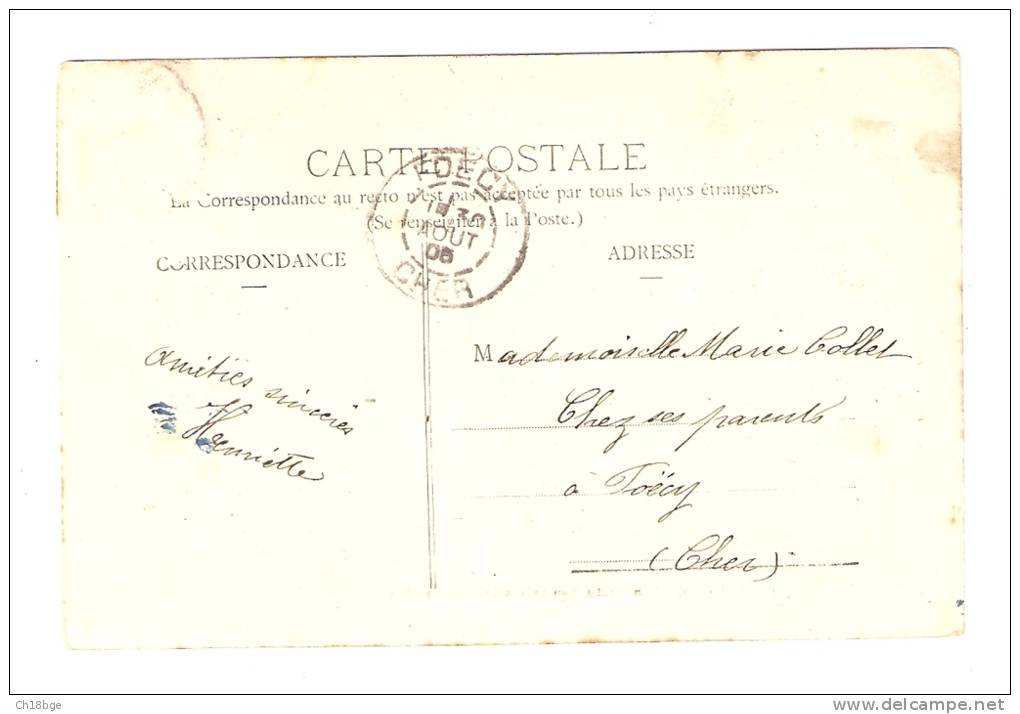 CARTE POSTALE
La Correspondance au recto n'est pas acceptée par tous les pays étrangers.
(Se renseigner à la Poste.)
FOËCY
30
AOUT
CHER
CORRESPONDANCE
ADRESSE
Amitiés sincères
Henriette
Mademoiselle Marie Collet
Chez ses parents
à Foëcy
(Cher)
Ch18bge
www.delcampe.net